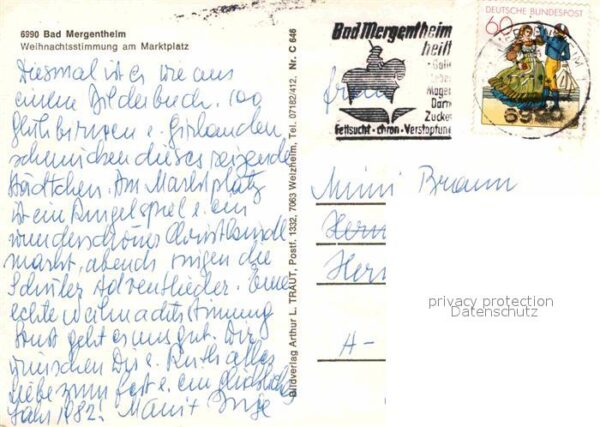 6990 Bad Mergentheim
Weihnachtsstimmung am Marktplatz
Diesmal ist es wie aus
einem Bilderbuch. 100
Glühbirnen u. Girlanden
schmücken dieses reizende
Städtchen. Am Marktplatz
ist ein Ringelspiel u. ein
wunderschöner Christkindl
markt, abends singen die
Schüler Adventlieder. Eine
echte Weihnachtsstimmung
Sonst geht es uns gut. Wir
wünschen Dir u. Ruth alles
Liebe zum Fest u. ein glückliches
Jahr 1982.
Bildverlag Arthur L. TRAUT, Postf. 1332, 7063 Welzheim, Tel. 07182/412, Nr. C 646
Bad Mergentheim
heilt
Galle
Leber
Magen
Darm
Zucker
Fettsucht - chron. Verstopfung
DEUTSCHE BUNDESPOST
60
6990
Frau
Mimi Braun
Her
A-
privacy protection
Datenschutz